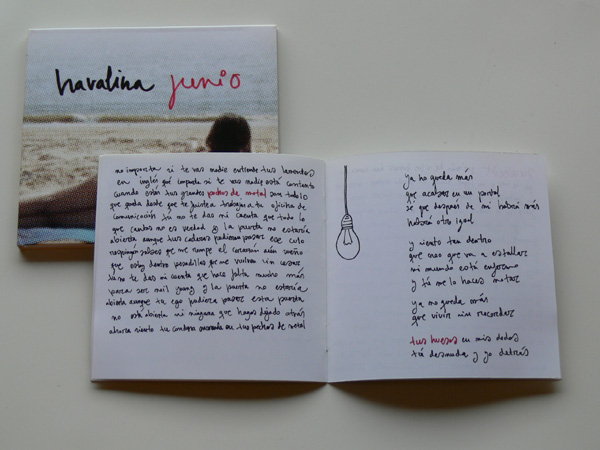 havalina junio
no importa si te vas nadie entiende tus lamentos
en inglés qué importa si te vas nadie está contento
cuando están tus grandes pechos de metal son todo lo
que queda desde que te pintea trabajas a tu oficina de
comunicación tú no te das ni cuenta que todo lo
que cantas no es verdad la puerta no estaría
abierta aunque tus caderas pudieran pasar ese culo
respingón sabes que me rompe el corazón aún sueño
que estoy dentro pesadillas que me vuelven un
tú no te das ni cuenta que hace falta mucho más
para ser neil young y la puerta no estaría
abierta aunque tu ego pudiera pasar esta puerta
no está abierta ni ninguna que hayas dejado atrás
ahora siento tu en tus pechos de metal
ya no queda más
que acabar en un portal
sé que después de mí habrá más
habrá otro igual
y siento tan dentro
que creo que va a estallar
mi mundo está enfermo
y tú me lo haces notar
ya no queda más
que vivir sin recordar
tus huesos en mis dedos
tú desnuda y yo detrás